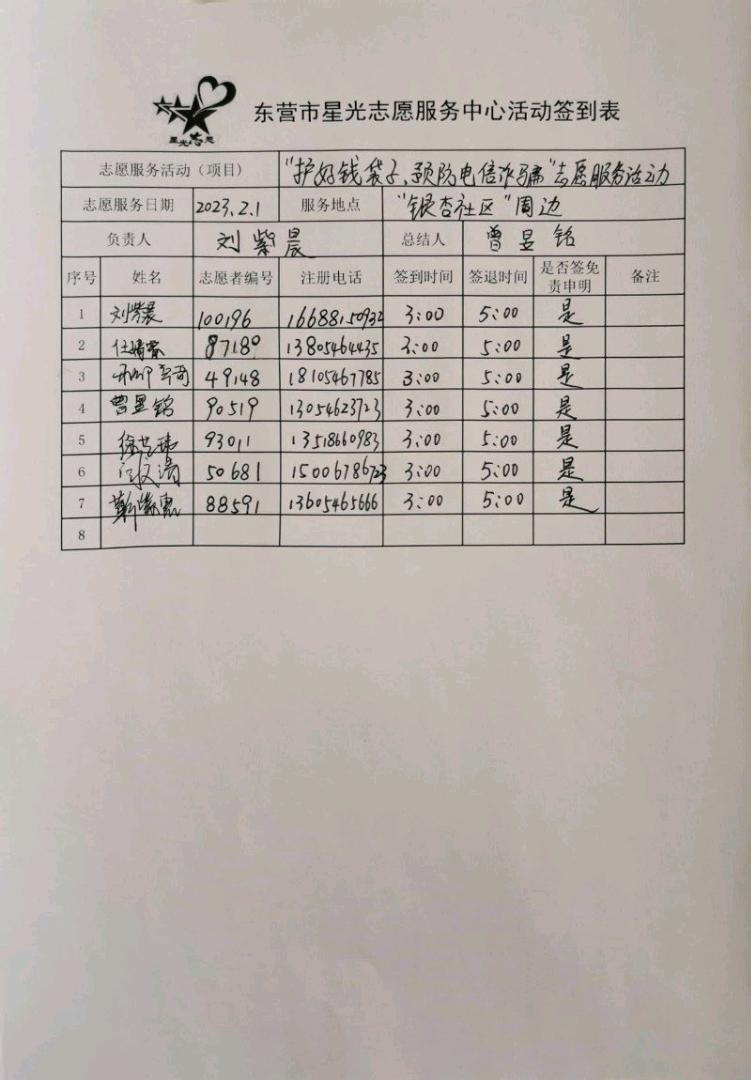 星光志愿
东营市星光志愿服务中心活动签到表
志愿服务活动（项目） “护好钱袋子、预防电信诈骗”志愿服务活动
志愿服务日期 2023.2.1 服务地点 “银杏社区”周边
负责人 刘紫晨 总结人 曾昱铭
序号 姓名 志愿者编号 注册电话 签到时间 签退时间 是否签免责申明 备注
1 刘紫晨 100196 16688150932 3:00 5:00 是
2 87189 13805464435 3:00 5:00 是
3 49148 18105467785 3:00 5:00 是
4 曾昱铭 90519 13054623723 3:00 5:00 是
5 93011 13518660983 3:00 5:00 是
6 50681 15006786723 3:00 5:00 是
7 88591 13605465666 3:00 5:00 是
8